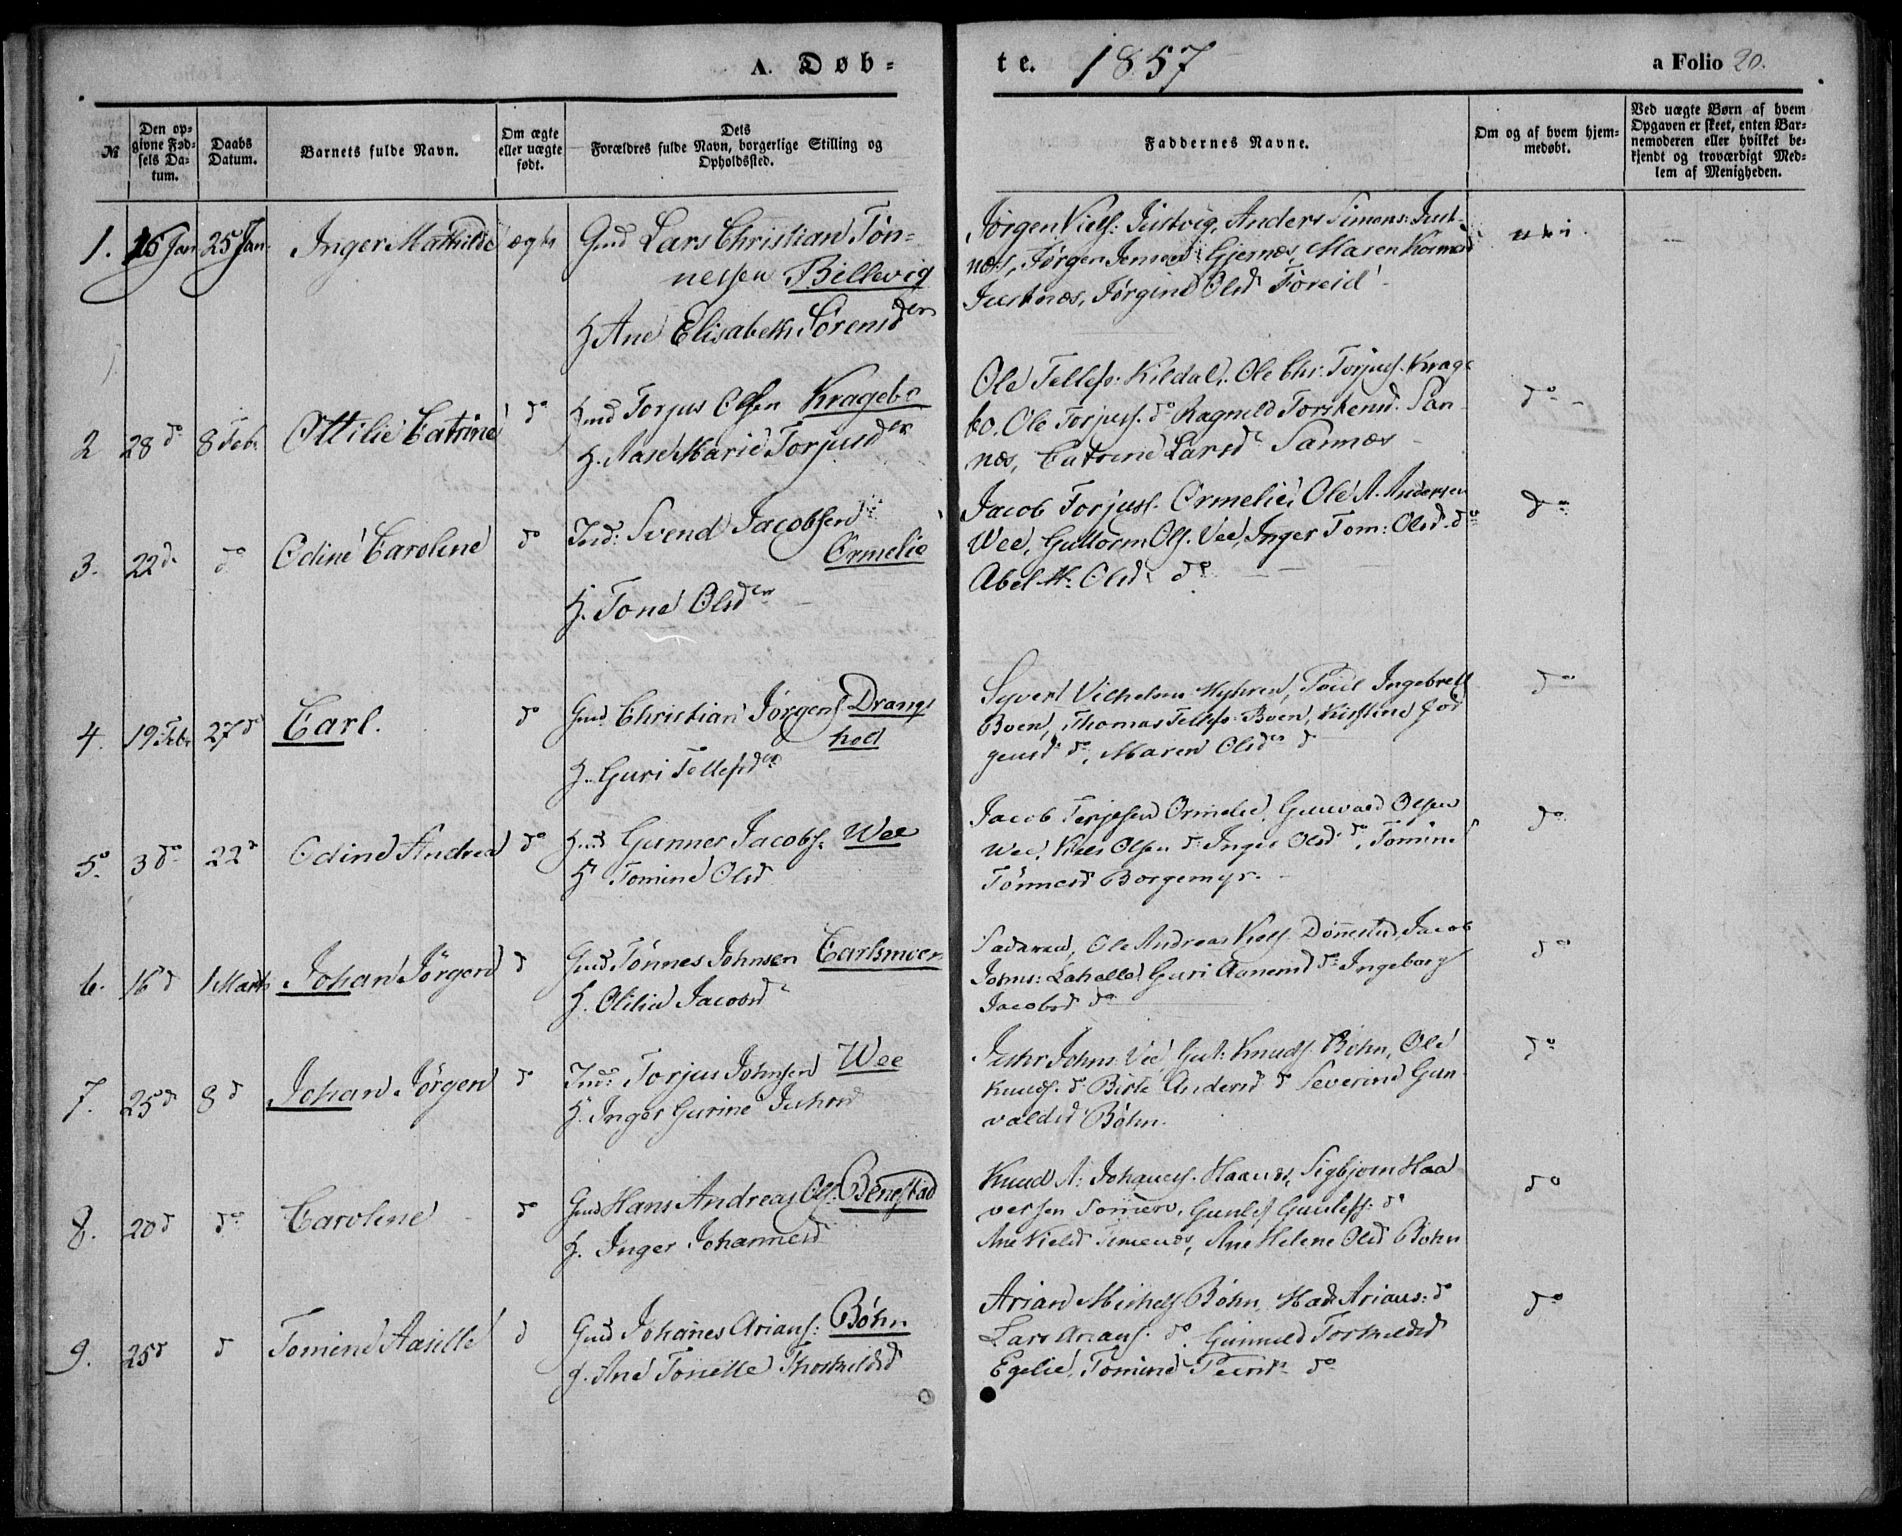 A. Døb- te. 1857 a Folio 20.
№
Den op-
givne Fød-
sels Da-
tum.
Daabs
Datum.
Barnets fulde Navn.
Om ægte
eller uægte
født.
Dets
Forældres fulde Navn, borgerlige Stilling og
Opholdssted.
Faddernes Navne.
Om og af hvem hjem-
medøbt.
Ved uægte Børn af hvem
Opgaven er skeet, enten Bar-
nemoderen eller hvilket be-
kjendt og troværdigt Med-
lem af Menigheden.
1. 15 Jan 25 Jan. Inger Mathilde ægte Gmd Lars Christian Tøn-
nessen Billevig
H Ane Elisabeth Sørensd
Jørgen Niels: Justvig, Anders Simons: Just-
næs, Jørgen Gjernæs, Maren
Justnæs, Jørgine Olsd Foreid
2 28 do 8 Feb. Ottilie Catrine do Torjus Olsen Kragebo
H. Aase Marie Torjusd
Ole Tellefs: Kildal, Ole Chr. Torjus. Krage
bo, Ole Torjuss. do Ragnild Torstensd. San-
næs, Catrine Larsd Sannæs
do
3. 22 d. do Odine Caroline do Ind: Svend Jacobsen
Ormelie
H. Tone Olsd
Jacob Torjuss. Ormelie, Ole A. Andersen
Wee, Guttorm Ols. Vee, Inger Tom: Olsd. do
Abel M. Olsd. do
do
4. 19 Feb. 27 d Carl. do Gmd Christian Jørgens Drangs
holt
H. Guri Tellefsd
Syvert Vilhelm Myhren, Poul Ingebrets
Boen, Thomas Tellefs: Boen, Kirstine Jør
gensd do, Maren Olsd d
do
5. 3 do 22 d Odine Andrea do Gunner Jacobs. Wee
H Tomine Olsd
Jacob Terjesen Ormelie, Gunvald Olsen
Wee, Niels Olsen do Inger Olsd do, Tomine
Tønnesd Borgemyr.
do
6. 16 d 1 Marts Johan Jørgen d Gmd Tønnes Johnsen Carlsmoen
H. Olilia Jacobsd
Faderen, Ole Andreas Dønnestad, Jacob
Johns: Lahelle, Guri Aanensd do Ingeborg
Jacobsd do
do
7. 25 d 8 d Johan Jørgen d Ind: Torjus Johnsen Wee
H. Inger Gurine
Johns: Vee, Gut: Knuds. Bøhn, Ole
Knuds. do Birte Andersd do Severine Gun
valdsd Bøhn.
do
8. 20 d do Caroline do Gmd Hans Andreas Ols. Benestad
H. Inger Johannesd
Knud A: Johannes. Haanes, Sigbjørn Haa
versen
Ane Nielsd Timenes, Ane Helene Olsd Bøhn
do
9. 25 d d Tomine Aasille d Gmd Johanes Arians: Bøhn
H. Ane Tonette
Arian Michels Bøhn, Arians: do
Lars Arians. do. Gunnild Torkeldsd
Egelie, Tomine do
do